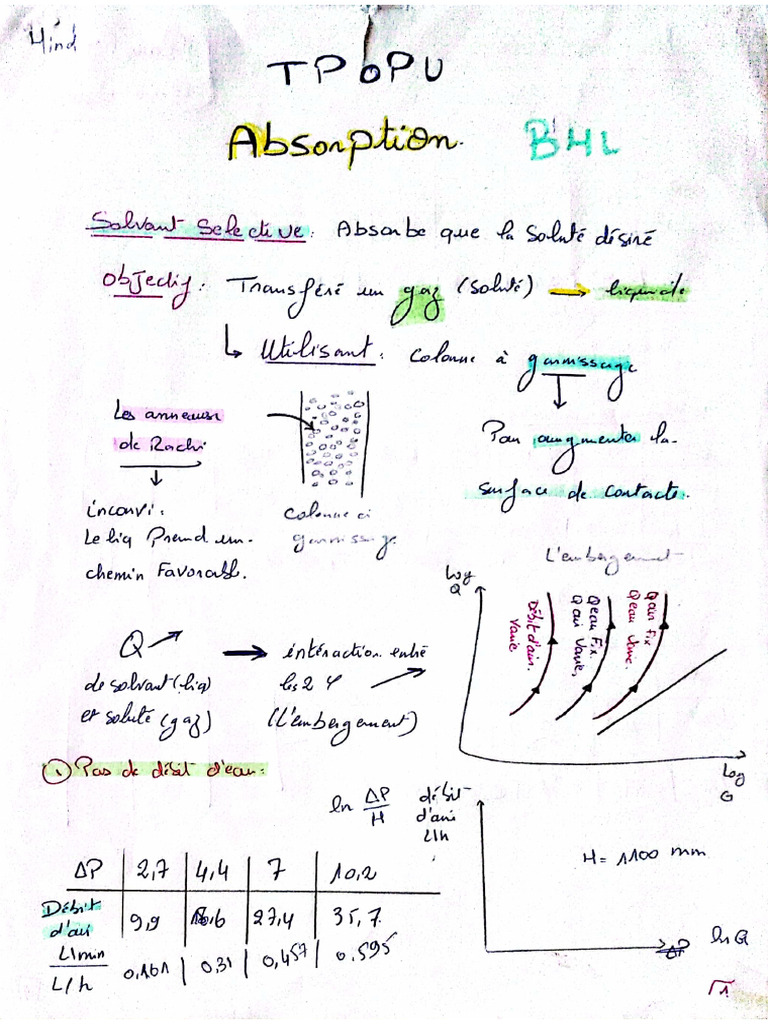 Hind
TP OPU
Absorption. BHL
Solvant Selective: Absorbe que la soluté désiré
Objectif: Transféré un gaz (soluté) → liquide
↳ Utilisant: Colonne à garnissage
Les anneaux
de Rachi
Pour augmenter la
surface de contacte.
inconvi:
Le liq Prend un
chemin Favorable.
Colonne à
garnissage
L'embergement
Log
Q
Débit d'air
Varie
Q eau Fix.
Q air Varie,
Q air fix
Q eau Varie.
Log
G
Q ↗ → intéraction entre
de solvant (liq) les 2 φ ↗
et soluté (gaz) (L'embergement)
① Pas de débit d'eau:
ln ΔP/H
débit
d'air
L/h
H = 1100 mm
ΔP | 2,7 | 4,4 | 7 | 10,2
Débit
d'air 9,9 | 18,6 | 27,4 | 35,7
L/min
L/h 0,161 | 0.31 | 0,457 | 0.595
ΔP ln Q